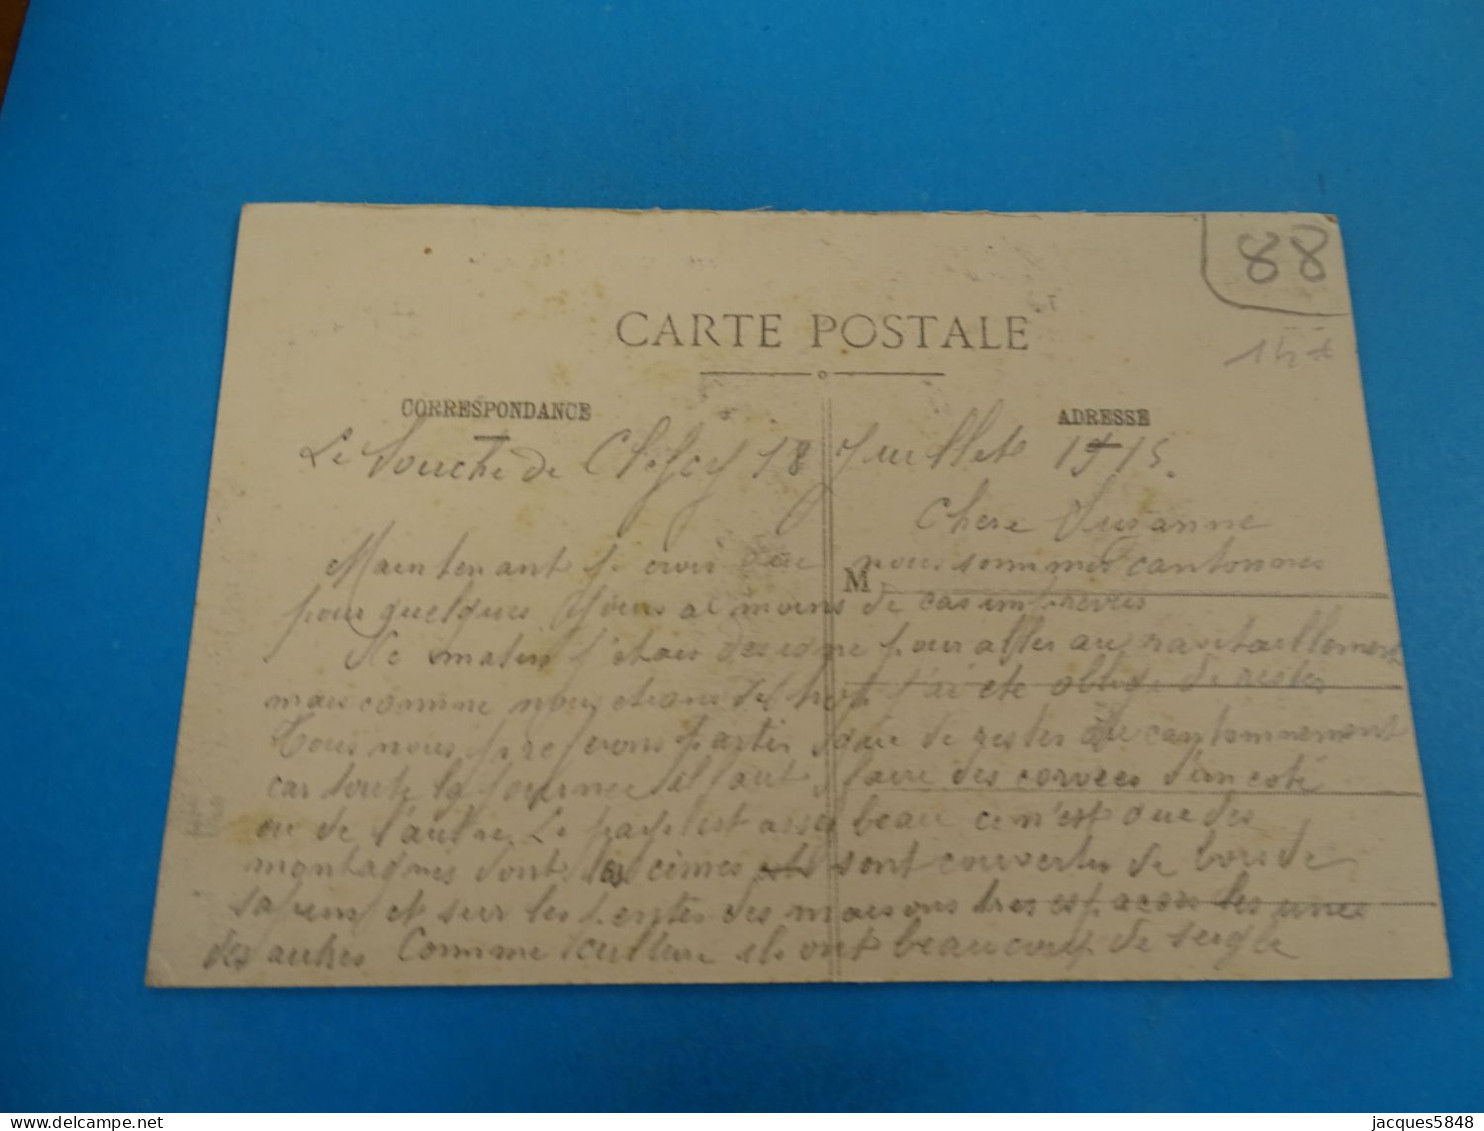 88
14
CARTE POSTALE
CORRESPONDANCE
ADRESSE
Le Souche de 18 Juillet 1915.
Chere Susanne
M
Maintenant je crois que nous sommes cantonnes
pour quelques jours a moins de cas imprevus
Ce matin j'etais designe pour aller au ravitaillement
mais comme nous etions de trop j'ai ete oblige de rester
Tous nous preferons partir que de rester au cantonnement
car toute la journee il faut faire des corvees d'un coté
ou de l'autre. Le pays est assez beau ce n'est que des
montagnes dont les cimes sont couvertes de bois de
sapins et sur les pentes des maisons tres espacees les unes
des autres Comme culture ils ont beaucoup de seigle
jacques5848